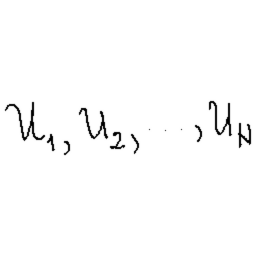 U₁, U₂, ..., U_N